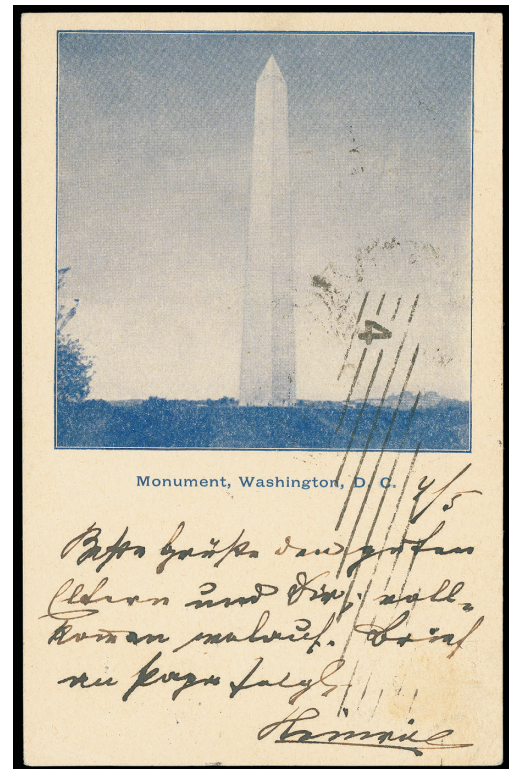 4
Monument, Washington, D. C.
4/5
Beste Grüße den guten
Eltern und Dir, voll-
kom̅en wolauf. Brief
an Papa folgt.
Heinrich